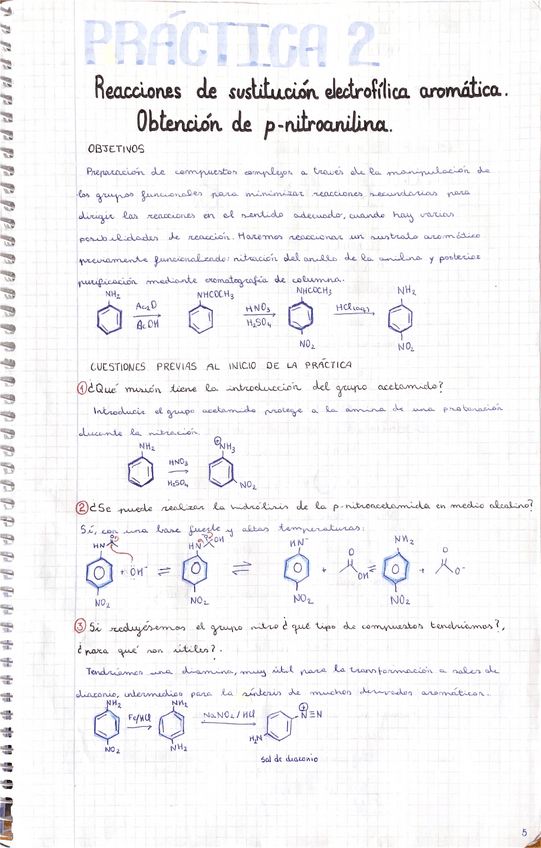 PRÁCTICA 2
Reacciones de sustitución electrofílica aromática.
Obtención de p-nitroanilina.
OBJETIVOS
Preparación de compuestos complejos a través de la manipulación de
los grupos funcionales para minimizar reacciones secundarias para
dirigir las reacciones en el sentido adecuado, cuando hay varias
posibilidades de reacción. Haremos reaccionar un sustrato aromático
previamente funcionalizado: nitración del anillo de la anilina y posterior
purificación mediante cromatografía de columna.
NH₂ NHCOCH₃ NHCOCH₃ NH₂
Ac₂O HNO₃ HCl(aq)
AcOH H₂SO₄
NO₂ NO₂
CUESTIONES PREVIAS AL INICIO DE LA PRÁCTICA
① ¿Qué misión tiene la introducción del grupo acetamido?
Introducir el grupo acetamido protege a la amina de una protonación
durante la nitración.
NH₂ ⊕NH₃
HNO₃
H₂SO₄ NO₂
② ¿Se puede realizar la hidrólisis de la p-nitroacetamida en medio alcalino?
Sí, con una base fuerte y altas temperaturas:
HN O HN OH HN⁻ O NH₂ O
+ OH⁻ ⇌ ⇌ + OH ⇌ + O⁻
NO₂ NO₂ NO₂ NO₂
③ Si redujésemos el grupo nitro ¿qué tipo de compuestos tendríamos?,
¿para qué son útiles?.
Tendríamos una diamina, muy útil para la transformación a sales de
diazonio, intermedios para la síntesis de muchos derivados aromáticos.
NH₂ NH₂
Fe/HCl NaNO₂/HCl ⊕N≡N
NO₂ NH₂ H₂N
sal de diazonio
5